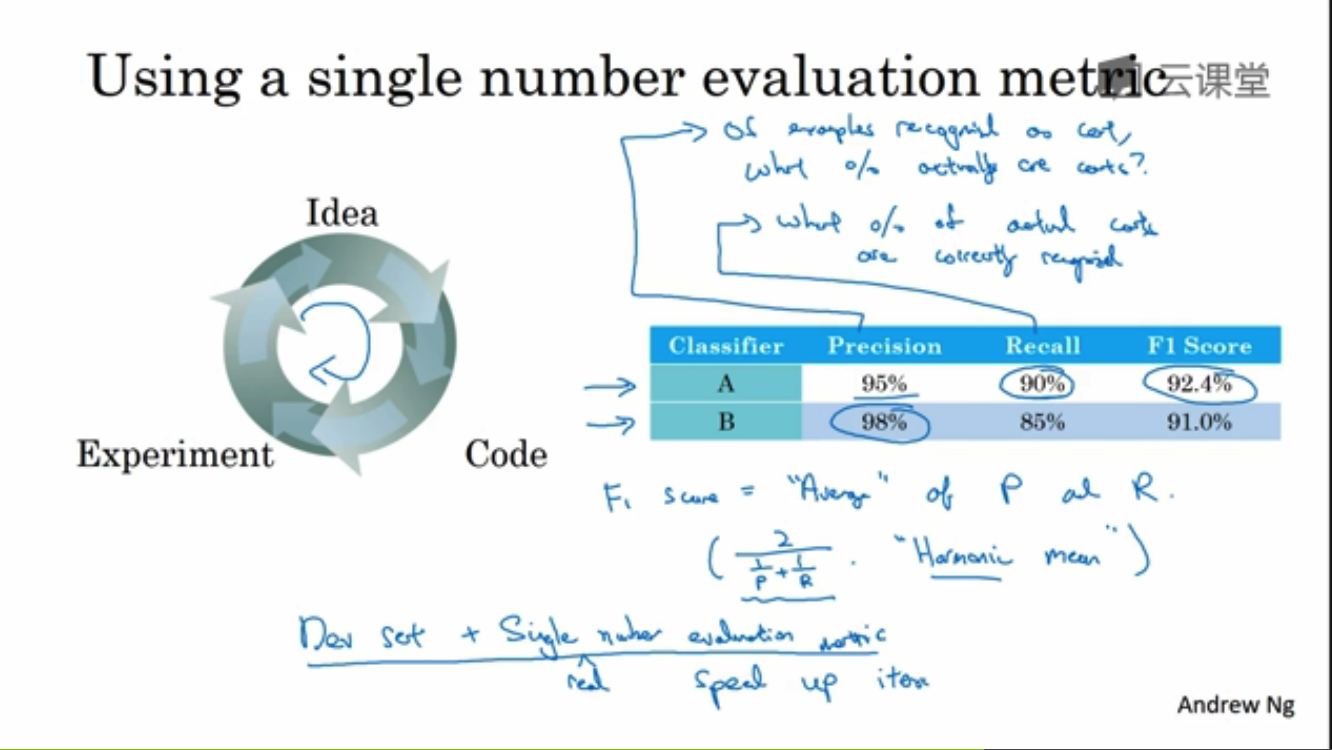 Using a single number evaluation metric
云课堂
Of examples recognized as cat,
what % actually are cats?
what % of actual cats
are correctly recognized
Idea
Experiment
Code
Classifier Precision Recall F1 Score
A 95% 90% 92.4%
B 98% 85% 91.0%
F₁ score = "Average" of P and R.
( 2 / (1/P + 1/R) . "Harmonic mean" )
Dev set + Single number evaluation metric
real speed up
Andrew Ng